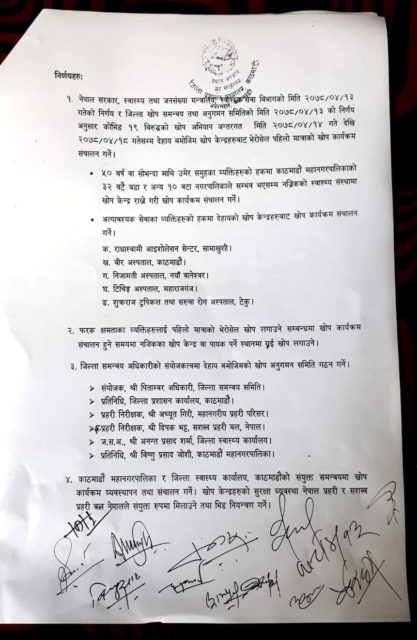 निर्णयहरुः
१. नेपाल सरकार, स्वास्थ्य तथा जनसंख्या मन्त्रालय, स्वास्थ्य सेवा विभागको मिति २०७८/०४/१३
गतेको निर्णय र जिल्ला खोप समन्वय तथा अनुगमन समितिको मिति २०७८/०४/१३ को निर्णय
अनुसार कोभिड १९ विरुद्धको खोप अभियान अन्तरगत मिति २०७८/०४/१४ गते देखि
२०७८/०४/१८ गतेसम्म देहाय बमोजिम खोप केन्द्रहरुबाट भेरोसेल पहिलो मात्राको खोप कार्यक्रम
संचालन गर्ने।
• ५० बर्ष वा सोभन्दा माथि उमेर समुहका व्यक्तिहरुको हकमा काठमाडौं महानगरपालिकाको
३२ वटै वडा र अन्य १० बटा नगरपालिकाले सम्भव भएसम्म नजिकको स्वास्थ्य संस्थामा
खोप केन्द्र राख्ने गरी खोप कार्यक्रम संचालन गर्ने।
• अत्यावश्यक सेवाका व्यक्तिहरुको हकमा देहायको खोप केन्द्रहरुबाट खोप कार्यक्रम संचालन
गर्ने।
क. राधास्वामी आइशोलेसन सेन्टर, सामाखुशी।
ख. वीर अस्पताल, काठमाडौं।
ग. निजामती अस्पताल, नयाँ बानेश्वर।
घ. टिचिङ्ग अस्पताल, महाराजगंज।
ङ. शुक्रराज ट्रपिकल तथा सरुवा रोग अस्पताल, टेकु।
२. फरक क्षमताका व्यक्तिहरुलाई पहिलो मात्राको भेरोसेल खोप लगाउने सम्बन्धमा खोप कार्यक्रम
संचालन हुने समयमा नजिकका खोप केन्द्र वा पायक पर्ने स्थानमा पुई खोप लगाउने।
३. जिल्ला समन्वय अधिकारीको संयोजकत्वमा देहाय बमोजिमको खोप अनुगमन समिति गठन गर्ने।
➢ संयोजक, श्री पिताम्बर अधिकारी, जिल्ला समन्वय समिति।
➢ प्रतिनिधि, जिल्ला प्रशासन कार्यालय, काठमाडौं।
➢ प्रहरी निरीक्षक, श्री अच्यूत गिरी, महानगरीय प्रहरी परिसर।
➢ प्रहरी निरीक्षक, श्री दिपक भट्ट, सशस्त्र प्रहरी बल, नेपाल।
➢ ज.स.अ., श्री अनन्त प्रसाद शर्मा, जिल्ला स्वास्थ्य कार्यालय।
➢ प्रतिनिधि, श्री बिष्णु प्रसाद जोशी, काठमाडौं महानगरपालिका।
४. काठमाडौं महानगरपालिका र जिल्ला स्वास्थ्य कार्यालय, काठमाडौंको संयुक्त समन्वयमा खोप
कार्यक्रम व्यवस्थापन तथा संचालन गर्ने। खोप केन्द्रहरुको सुरक्षा व्यवस्था नेपाल प्रहरी र सशस्त्र
प्रहरी बल नेपालले संयुक्त रुपमा मिलाउने तथा भिड नियन्त्रण गर्ने।